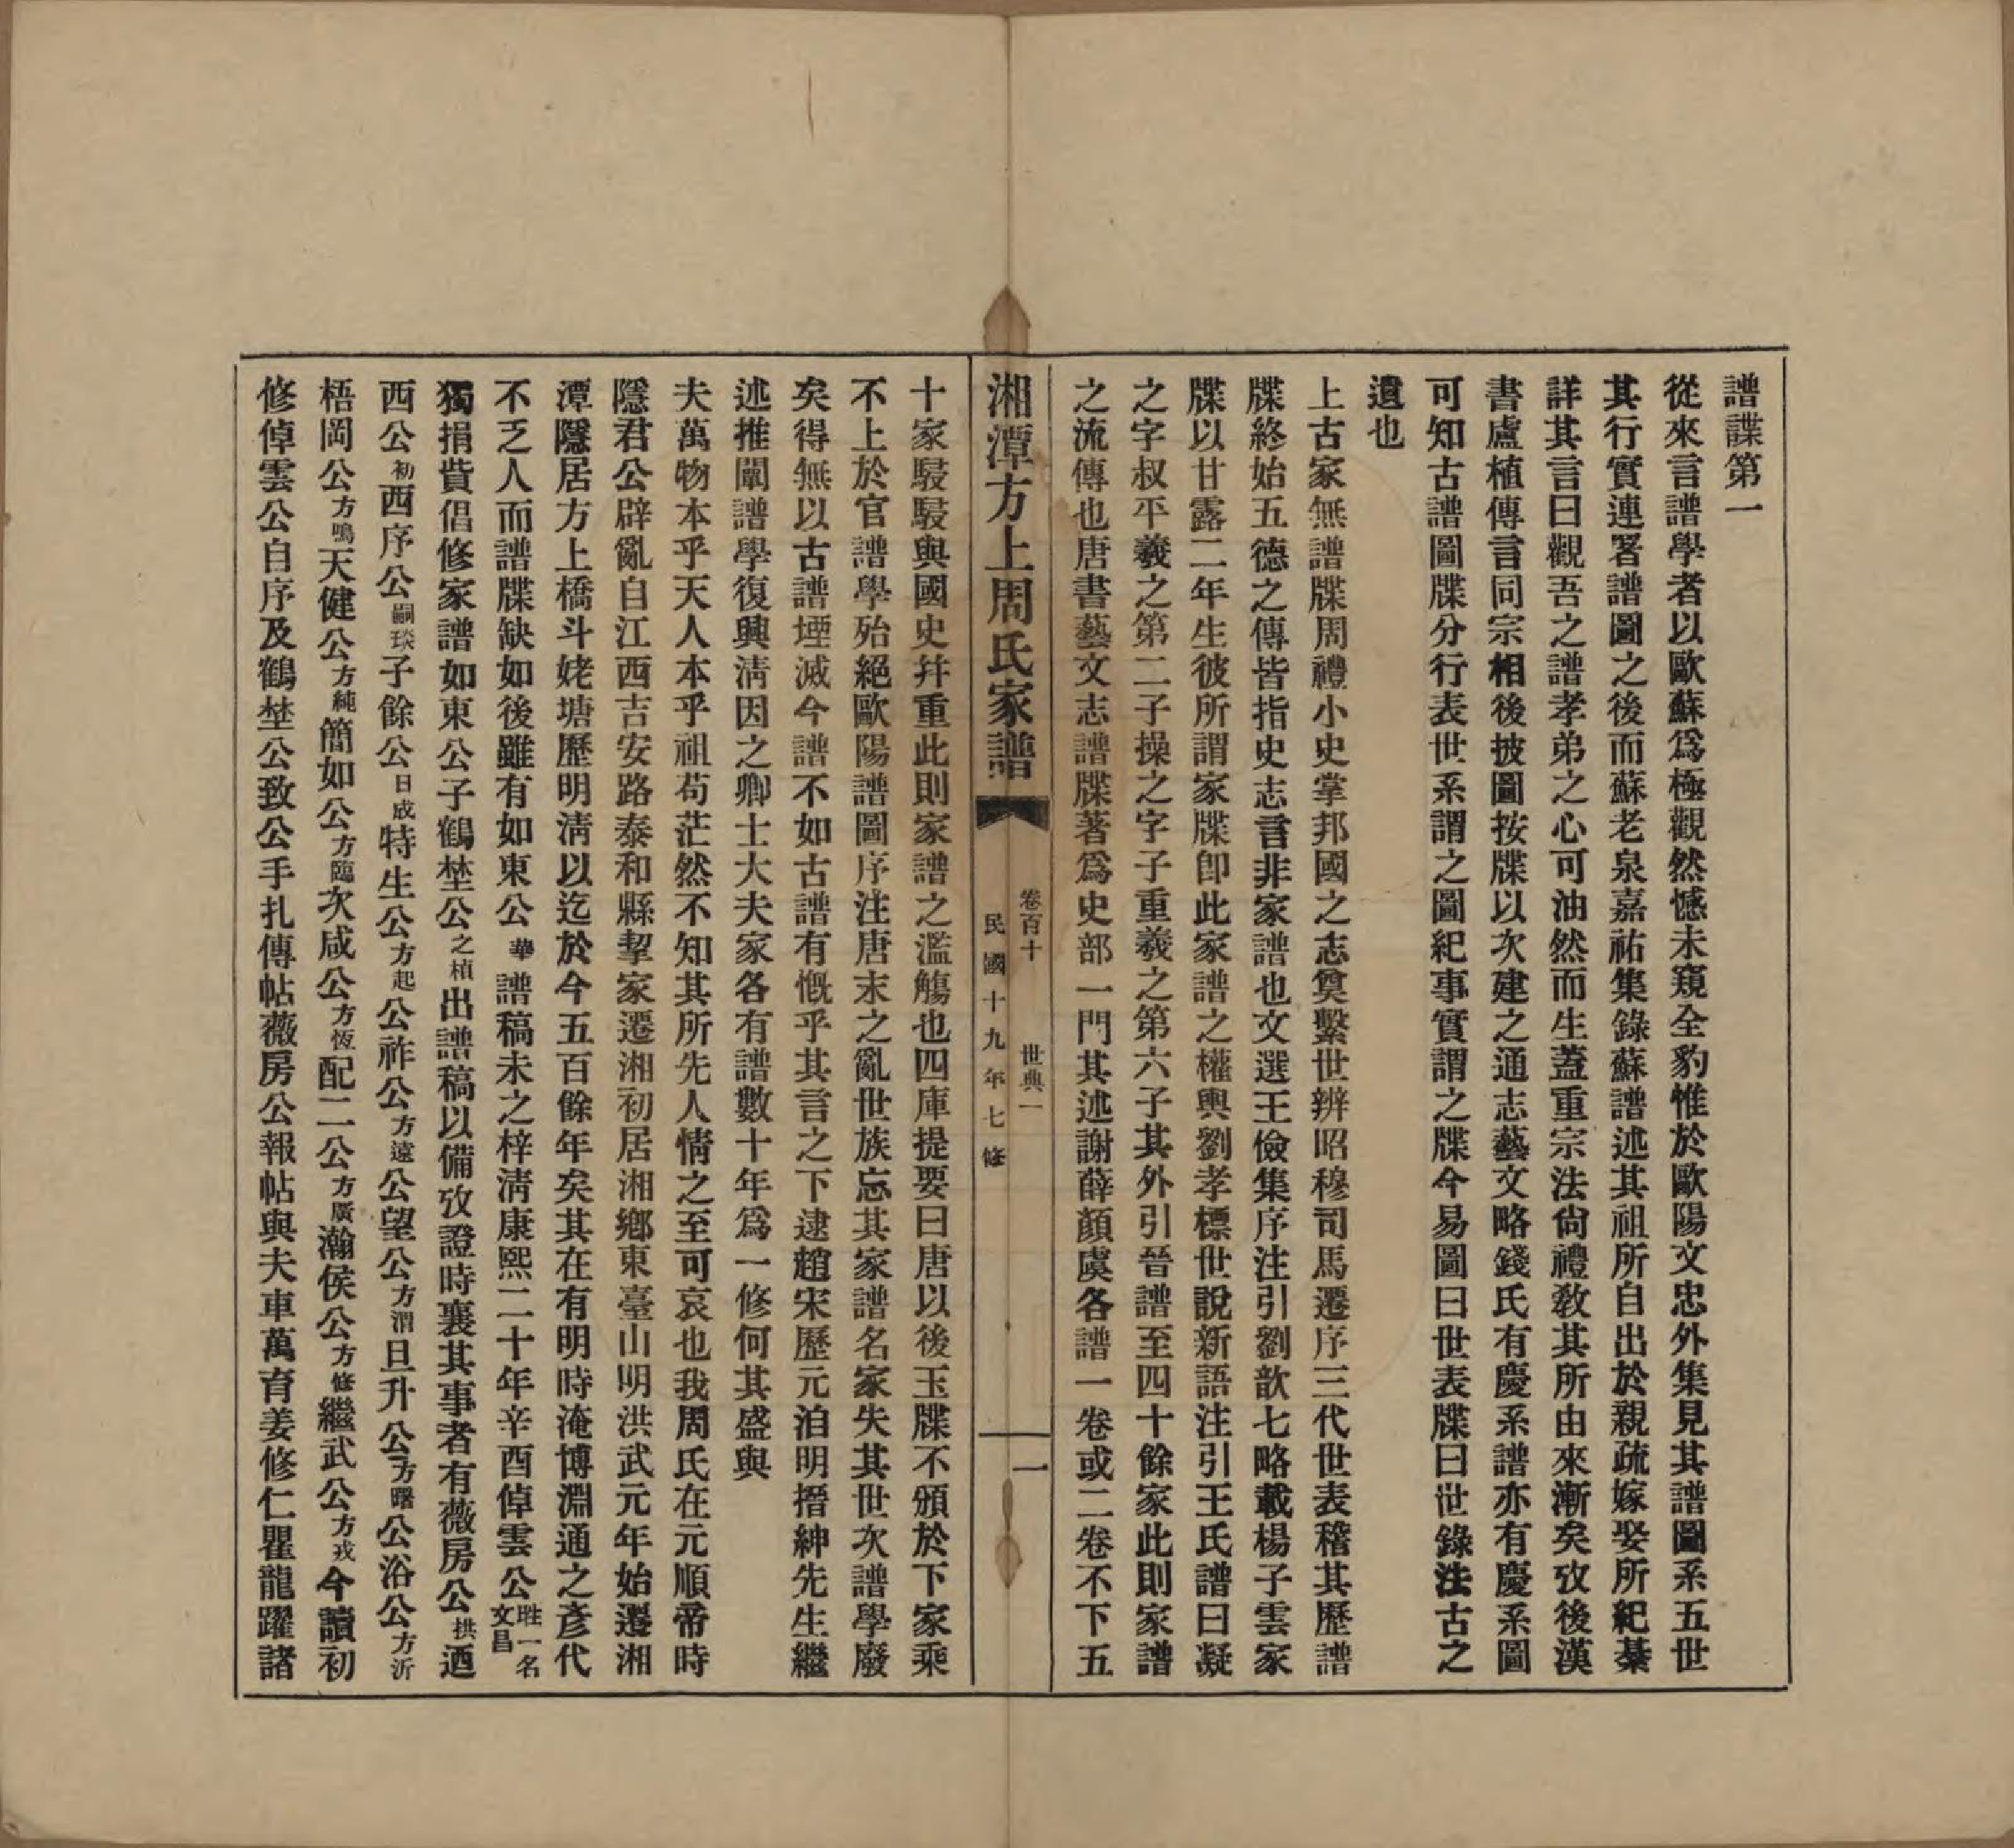 譜諜第一
從來言譜學者以歐蘇爲極觀然憾未窺全豹惟於歐陽文忠外集見其譜圖系五世
其行實連署譜圖之後而蘇老泉嘉祐集錄蘇譜述其祖所自出於親疏嫁娶所紀綦
詳其言曰觀吾之譜孝弟之心可油然而生蓋重宗法尙禮敎其所由來漸矣攷後漢
書盧植傳言同宗相後披圖按牒以次建之通志藝文略錢氏有慶系譜亦有慶系圖
可知古譜圖牒分行表世系謂之圖紀事實謂之牒今易圖曰世表牒曰世錄法古之
遺也
上古家無譜牒周禮小史掌邦國之志奠繫世辨昭穆司馬遷序三代世表稽其歷譜
牒終始五德之傳皆指史志言非家譜也文選王儉集序注引劉歆七略載楊子雲家
牒以甘露二年生彼所謂家牒卽此家譜之權輿劉孝標世說新語注引王氏譜曰凝
之字叔平羲之第二子操之字子重羲之第六子其外引晉譜至四十餘家此則家譜
之流傳也唐書藝文志譜牒著爲史部一門其述謝薛顏虞各譜一卷或二卷不下五
湘潭方上周氏家譜
卷百十 世典一
一
民國十九年七修
十家駸駸與國史幷重此則家譜之濫觴也四庫提要曰唐以後玉牒不頒於下家乘
不上於官譜學殆絕歐陽譜圖序注唐末之亂世族忘其家譜名家失其世次譜學廢
矣得無以古譜堙滅今譜不如古譜有慨乎其言之下逮趙宋歷元洎明搢紳先生繼
述推闡譜學復興淸因之卿士大夫家各有譜數十年爲一修何其盛與
夫萬物本乎天人本乎祖苟茫然不知其所先人情之至可哀也我周氏在元順帝時
隱君公辟亂自江西吉安路泰和縣挈家遷湘初居湘鄕東臺山明洪武元年始遷湘
潭隱居方上橋斗姥塘歷明淸以迄於今五百餘年矣其在有明時淹博淵通之彥代
不乏人而譜牒缺如後雖有如東公華譜稿未之梓淸康熙二十年辛酉倬雲公甡一名文昌
獨捐貲倡修家譜如東公子鶴埜公之楨出譜稿以備攷證時襄其事者有薇房公拱迺
西公初西序公嗣琰子餘公日成特生公方起公祚公方遠公望公方渭旦升公方曙公浴公方沂
梧岡公方鳴天健公方純簡如公方臨次咸公方恆配二公方廣瀚侯公方修繼武公方戎今讀初
修倬雲公自序及鶴埜公致公手札傳帖薇房公報帖與夫車萬育姜修仁瞿龍躍諸